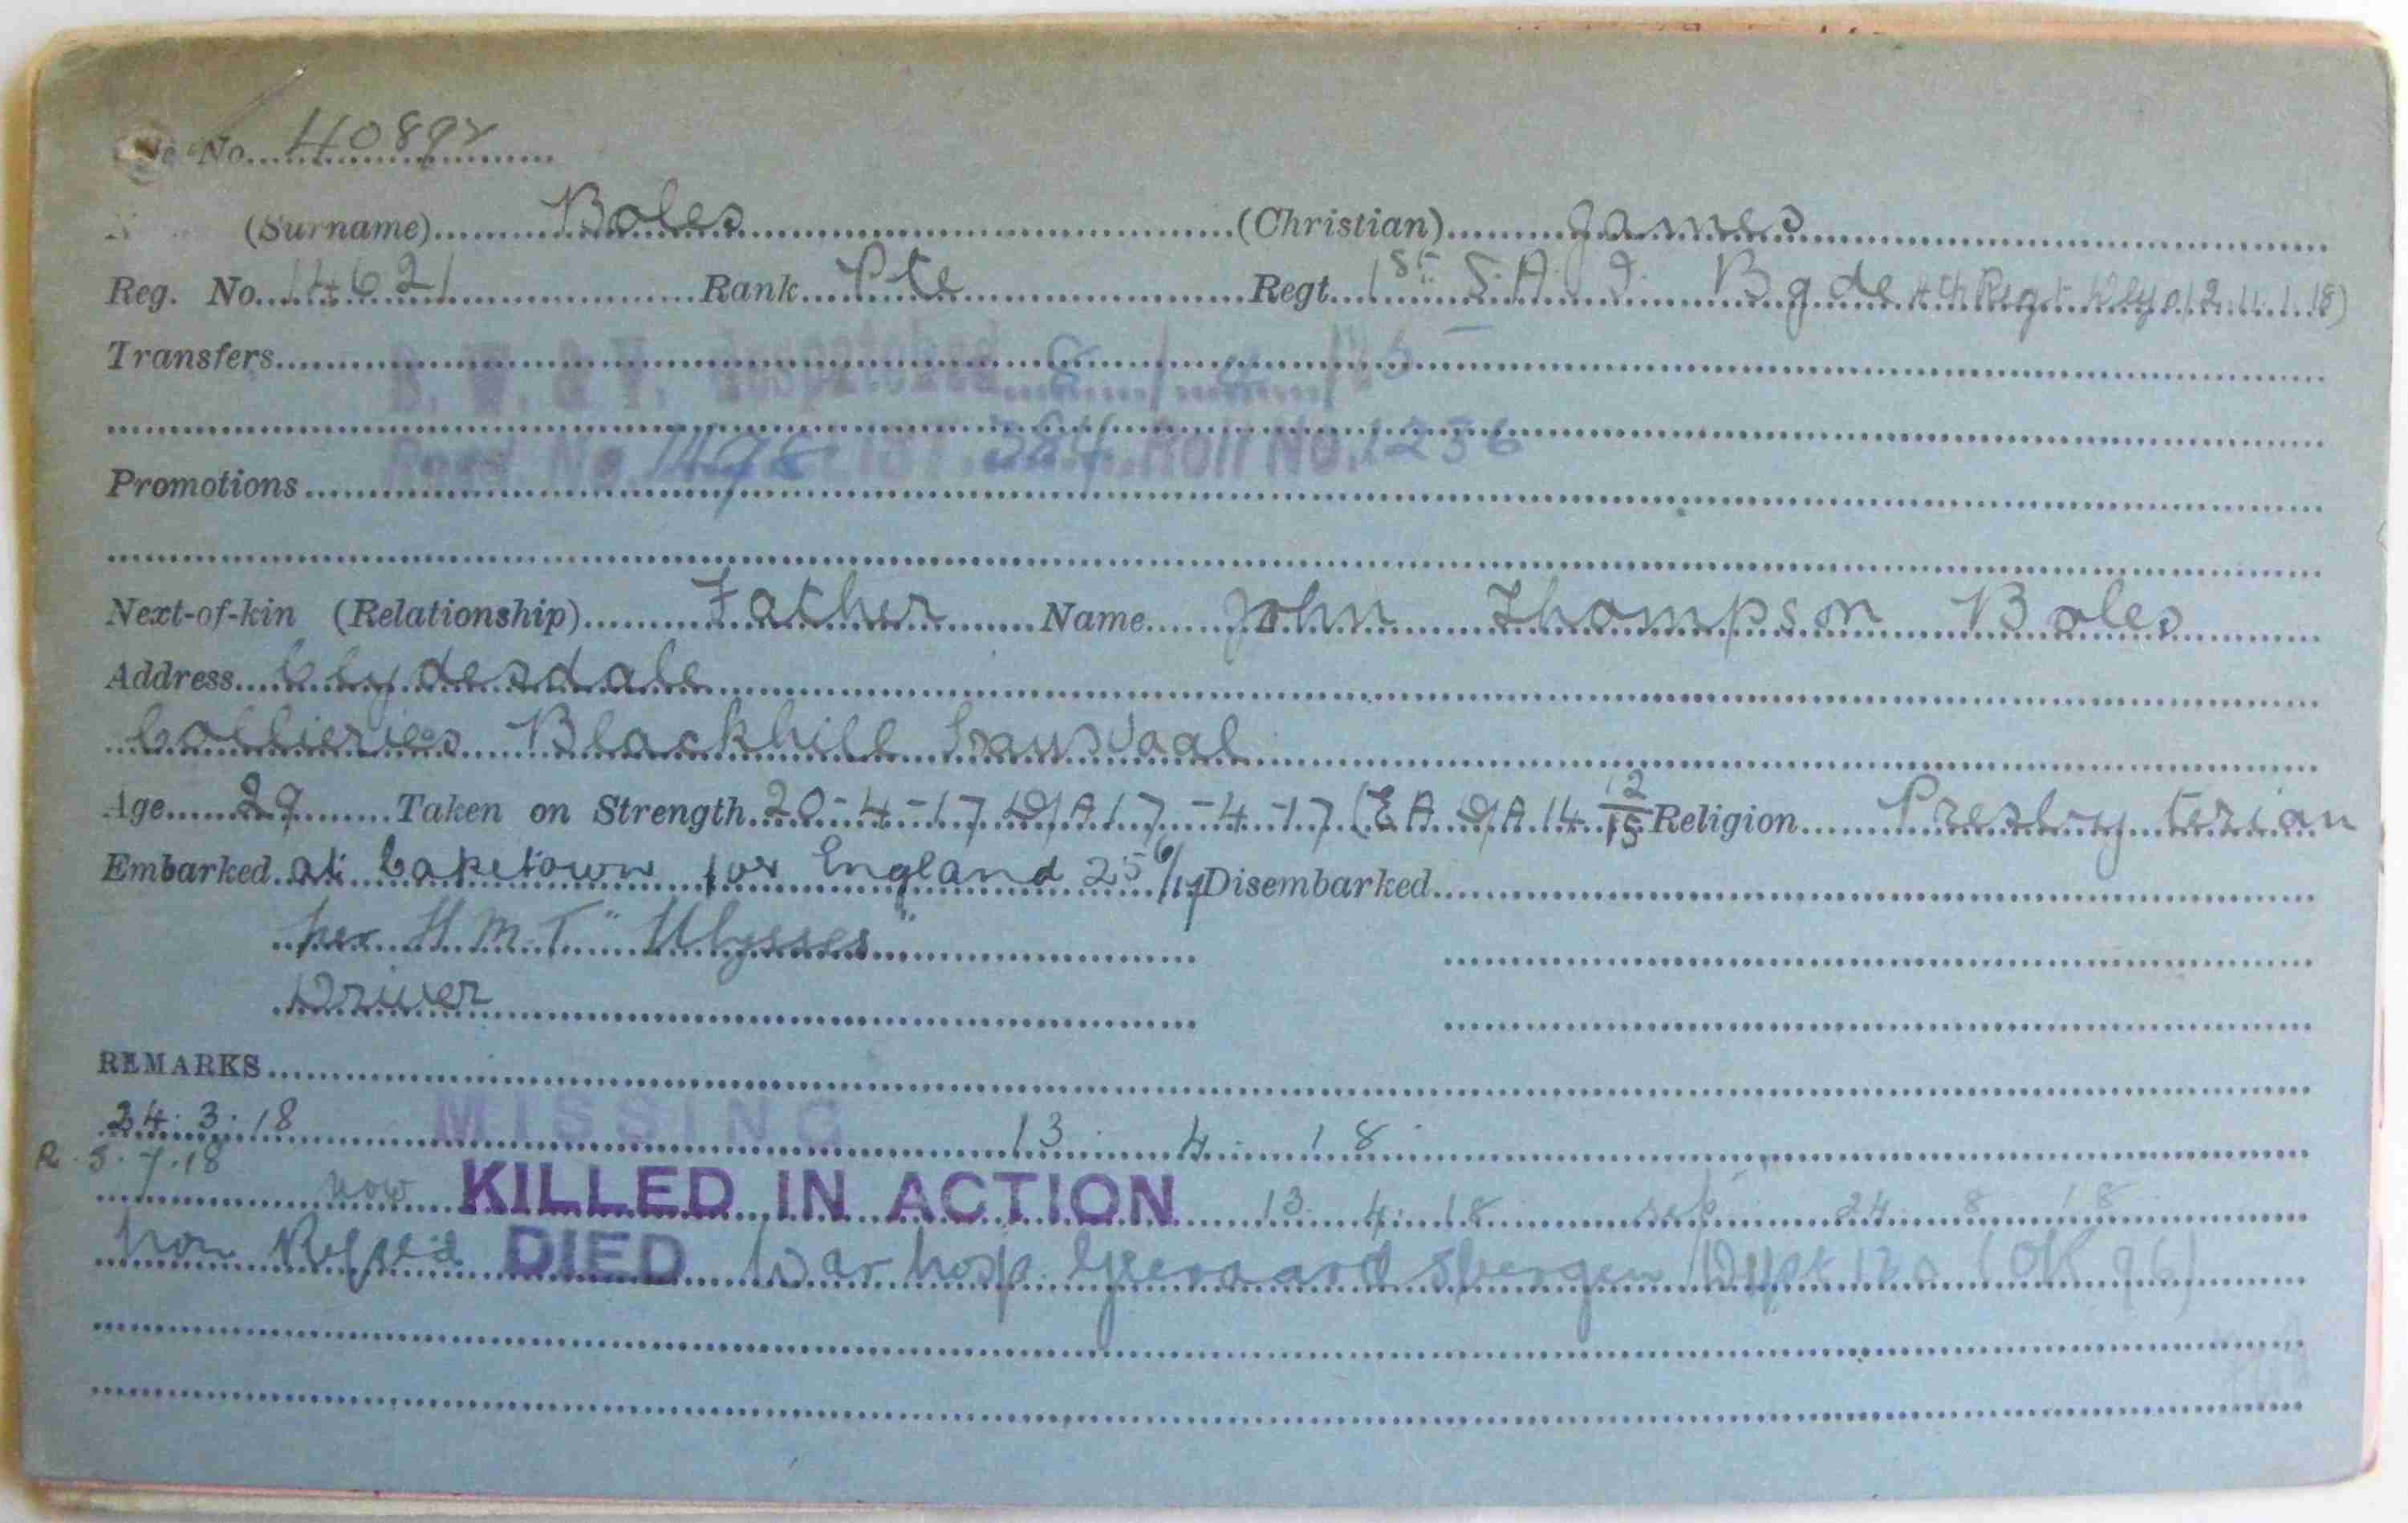 No. 40892
(Surname) Boles (Christian) James
Reg. No. 14621 Rank Pte Regt. 1st S.A.I. Bgde 4th Regt 11.1.18)
Transfers B. W. & V. Despatched
No. 1498 LIST 384 Roll No. 1236
Promotions
Next-of-kin (Relationship) Father Name John Thompson Boles
Address Clydesdale
Collieries Blackhill Transvaal
Age 29 Taken on Strength 20-4-17 D/A 17-4-17 (E A D/A 14 12/15 Religion Presbyterian
Embarked at Capetown for England 25/6/17 Disembarked
per H.M.T. "Ulysses"
Driver
REMARKS
24.3.18 MISSING 13.4.18.
R. 5.7.18
now KILLED IN ACTION 13.4.18 24 8 18
now DIED War hosp. Geeraardsbergen